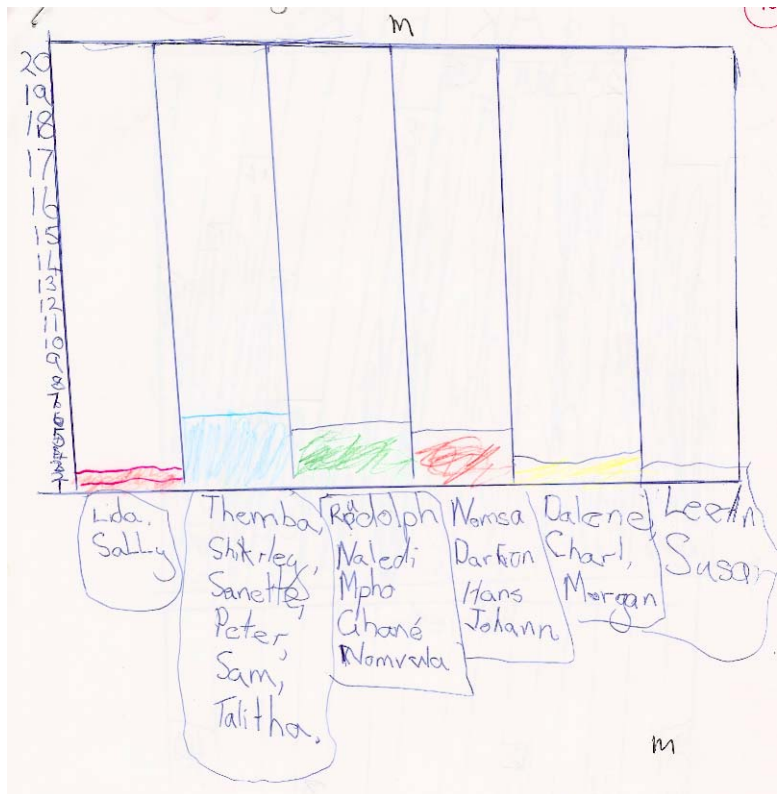 m
20
19
18
17
16
15
14
13
12
11
10
9
8
7
Lida,
Sally
Themba,
Shirley,
Sanette,
Peter,
Sam,
Talitha,
Rudolph
Naledi
Mpho
Nomsa
Hans
Johann
Dalene,
Charl,
Morgan
LeeAn
Susan
m